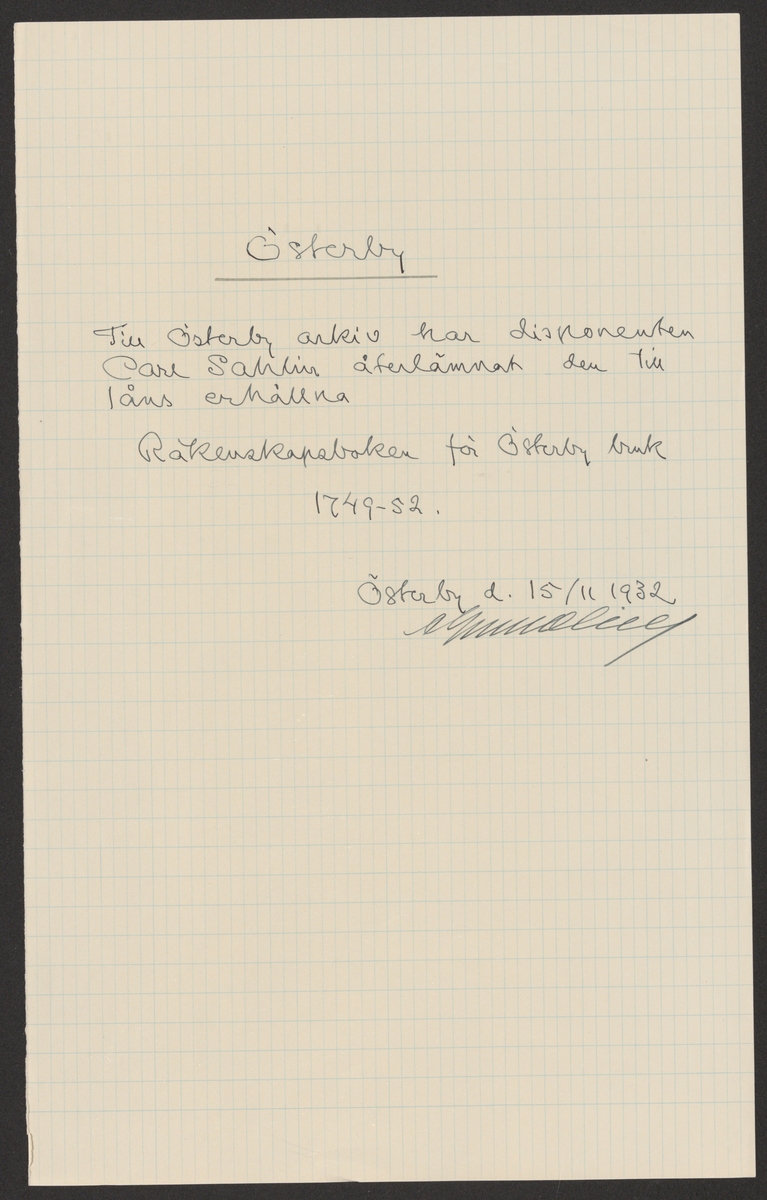 Österby
Till Österby arkiv har disponenten
Carl Sahlin återlämnat den till
låns erhållna
Räkenskapsboken för Österby bruk
1749-52.
Österby d. 15/11 1932